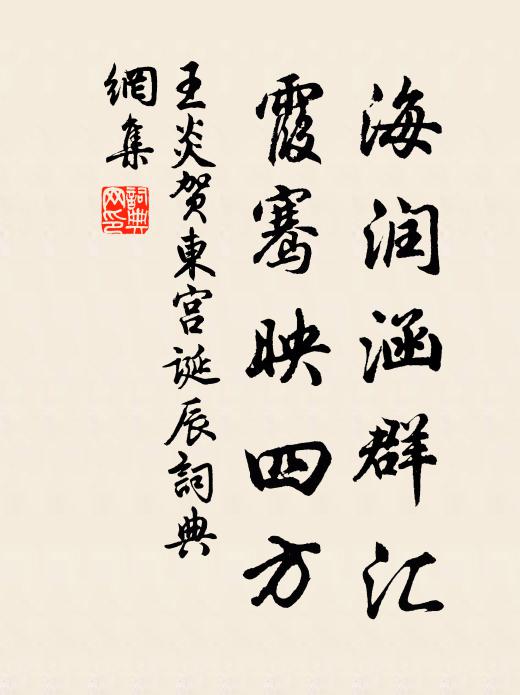 海润涵群汇
霞骞映四方
王炎贺東宫诞辰詞典
網集
詞典网印